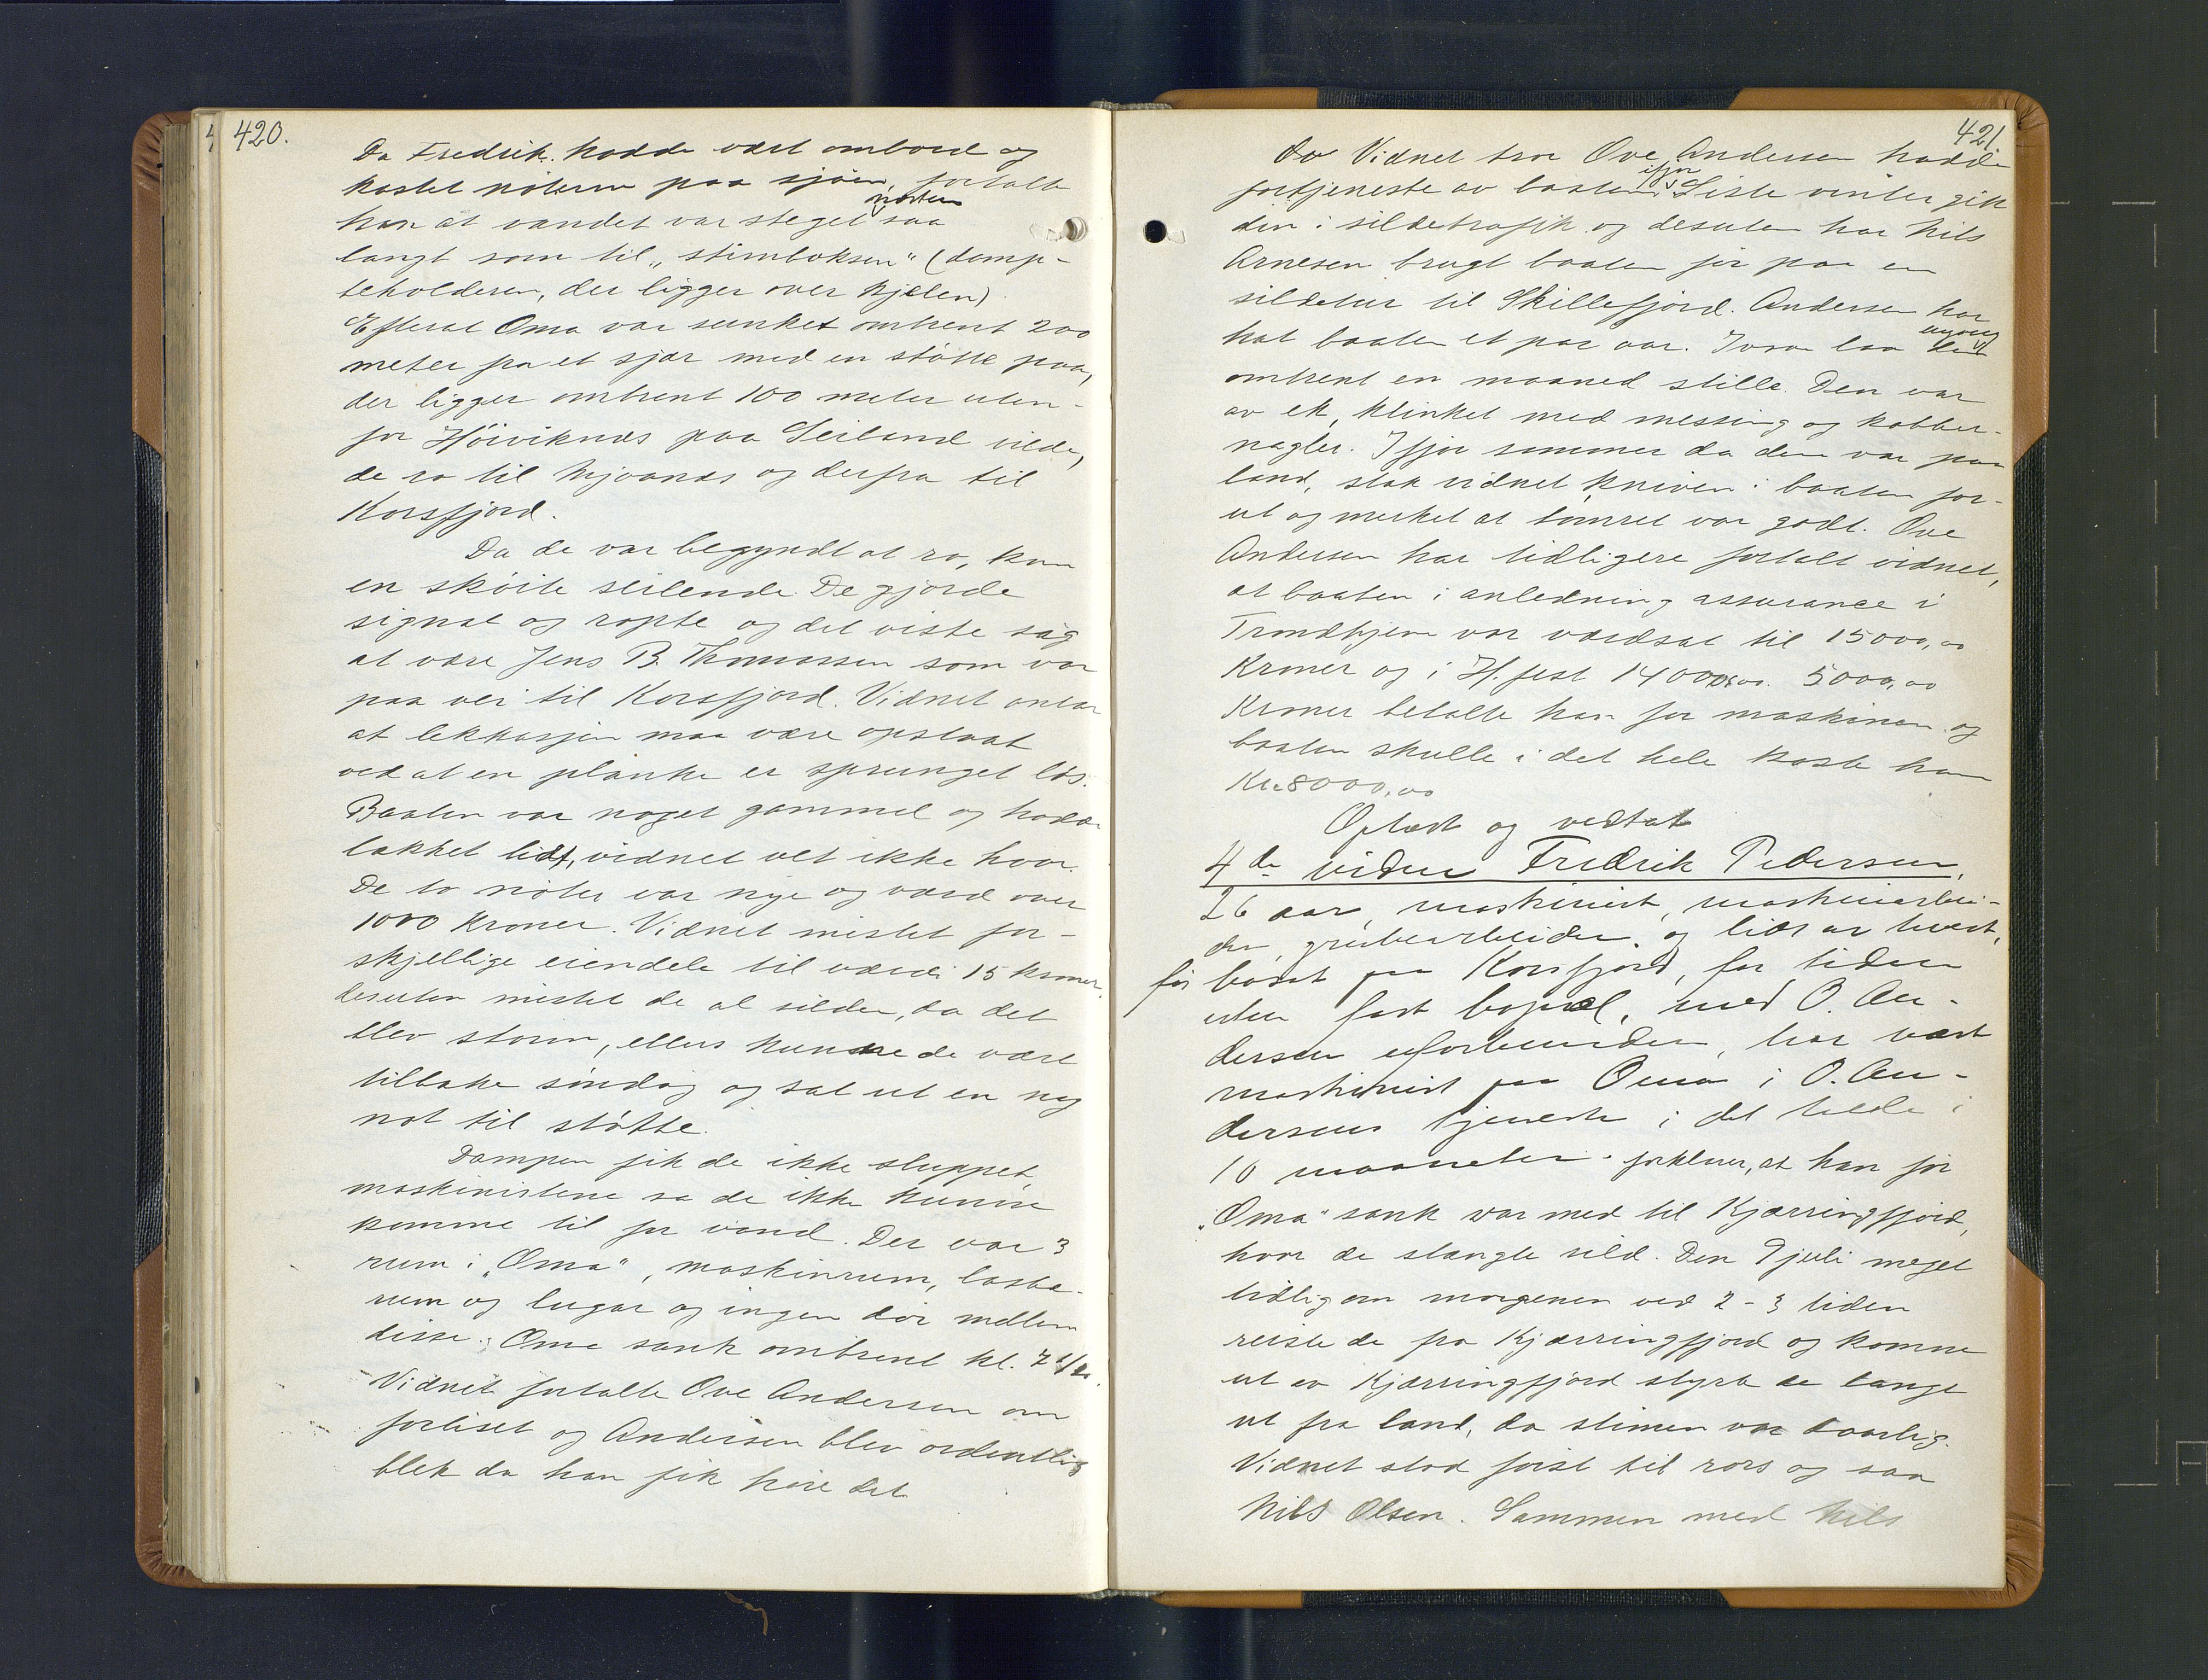 420.
Da Fredrik. hadde vært ombord og
kastet nöterne paa sjöen, fortalte
næsten
han at vandet var steget saa
langt som til „stimboksen" (damp-
beholderen, der ligger over kjelen)
Efterat Oma var sunket omtrent 200
meter fra et sjær med en stötte paa,
der ligger omtrent 100 meter uten-
for Höiviknes paa Seiland vilde,
de ro til Mjvanes og derfra til
Korsfjord.
Da de var begyndt at ro, kom
en sköite seilende. De gjorde
signal og ropte og det viste sig
at være Jens B. Thomassen som var
paa vei til Korsfjord. Vidnet antar
at lekkasjen maa være opstaat
ved at en planke er sprunget lös.
Baaten var noget gammel og hadde
lækket lidt, vidnet vet ikke hvor.
De to nöter var nye og værd over
1000 kroner. Vidnet mistet for-
skjellige eiendele til værdi 15 kroner.
desuten mistet de al silden, da det
blev storm, ellers kunde de være
tilbake söndag og sat ut en ny
not til stötte.
Dampen fik de ikke sluppet
maskinistene sa de ikke kunne
komme til for vand. Der var 3
rum i „Oma", maskinrum, laste-
rum og lugar og ingen dör mellem
disse. Oma sank omtrent kl. 7 1/2.
Vidnet fortalte Ove Andersen om
forliset og Andersen blev ordentlig
blek da han fik höre det
421.
Vidnet tror Ove Andersen hadde
ifjor
fortjeneste av baaten. Siste vinter gik
den i sildetrafik og desuten har Nils
Arnesen brugt baaten för paa en
sildetur til Skillefjord. Andersen har
hat baaten et par aar. Ivaar laa den
omtrent en maaned stille. Den var
av ek, klinket med messing og kobber-
nagler. Ifjor sommer da den var paa
land, stak vidnet kniven i baaten for-
ut og merket at tömret var godt. Ove
Andersen har tidligere fortalt vidnet,
at baaten i anledning assurance i
Trondhjem var værdsat til 15000,00
Kroner og i H.fest 14000,00. 5000,00
Kroner betalte han for maskinen og
baaten skulle i det hele koste ham
Kr. 8000,00
Oplæst og vedtat
4de vidne Fredrik Pedersen,
26 aar, maskinist, maskinarbei-
der, grubearbeider og lidt av hvert,
för bosat paa Korsfjord, for tiden
uten fast bopæl, med O. An-
dersen uforbunden, har vært
maskinist paa Oma i O. An-
dersens tjeneste i det hele i
10 maaneter. forklarer, at han för
„Oma" sank var med til Kjærringfjord,
hvor de stængte sild. Den 9 juli meget
tidlig om morgenen ved 2-3 tiden
reiste de fra Kjærringfjord og komne
ut av Kjærringfjord styrte de langt
ut fra land, da stimen var daarlig.
Vidnet stod först til rors og saa
Nils Olsen. Sammen med Nils